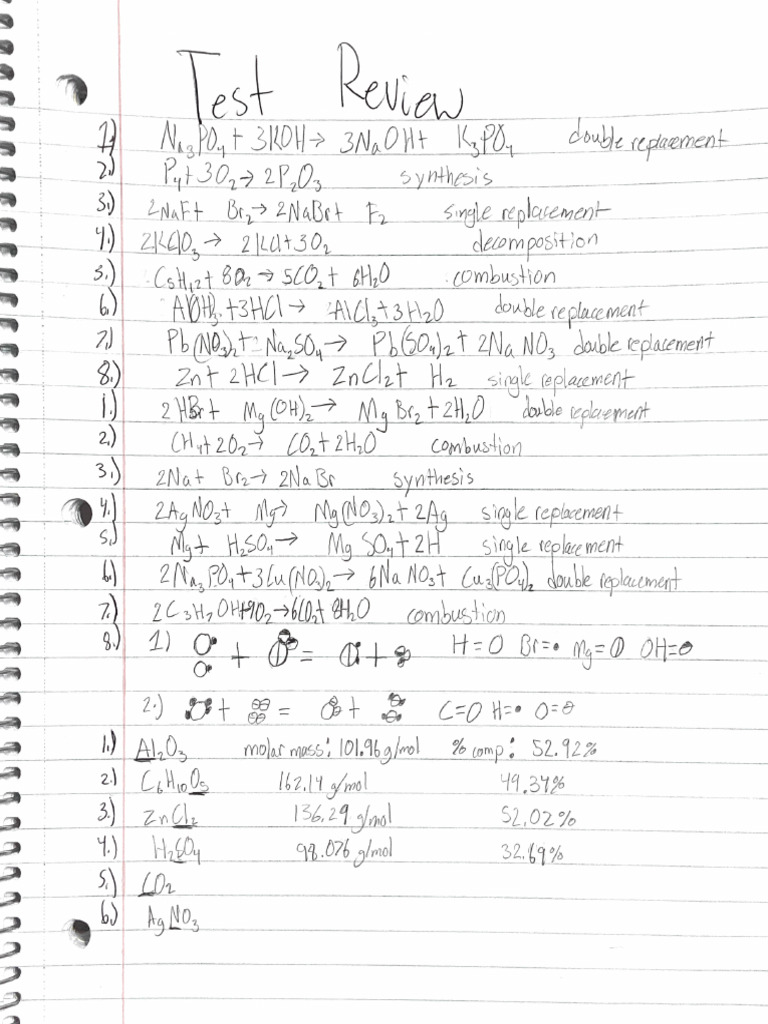 Test Review
1.) Na₃PO₄ + 3KOH → 3NaOH + K₃PO₄ double replacement
2.) P₄ + 3O₂ → 2P₂O₃ synthesis
3.) 2NaF + Br₂ → 2NaBr + F₂ single replacement
4.) 2KClO₃ → 2KCl + 3O₂ decomposition
5.) C₅H₁₂ + 8O₂ → 5CO₂ + 6H₂O combustion
6.) AlOH₃ + 3HCl → AlCl₃ + 3H₂O double replacement
7.) Pb(NO₃)₂ + Na₂SO₄ → Pb(SO₄)₂ + 2NaNO₃ double replacement
8.) Zn + 2HCl → ZnCl₂ + H₂ single replacement
1.) 2HBr + Mg(OH)₂ → MgBr₂ + 2H₂O double replacement
2.) CH₄ + 2O₂ → CO₂ + 2H₂O combustion
3.) 2Na + Br₂ → 2NaBr synthesis
4.) 2AgNO₃ + Mg → Mg(NO₃)₂ + 2Ag single replacement
5.) Mg + H₂SO₄ → MgSO₄ + 2H single replacement
6.) 2Na₃PO₄ + 3Cu(NO₃)₂ → 6NaNO₃ + Cu₃(PO₄)₂ double replacement
7.) 2C₃H₇OH + 9O₂ → 6CO₂ + 8H₂O combustion
8.) 1.) + = + H= Br= Mg= OH=
2.) + = + C= H= O=
1.) Al₂O₃ molar mass: 101.96 g/mol % comp: 52.92%
2.) C₆H₁₀O₅ 162.14 g/mol 49.34%
3.) ZnCl₂ 136.29 g/mol 52.02%
4.) H₂SO₄ 98.076 g/mol 32.69%
5.) CO₂
6.) AgNO₃